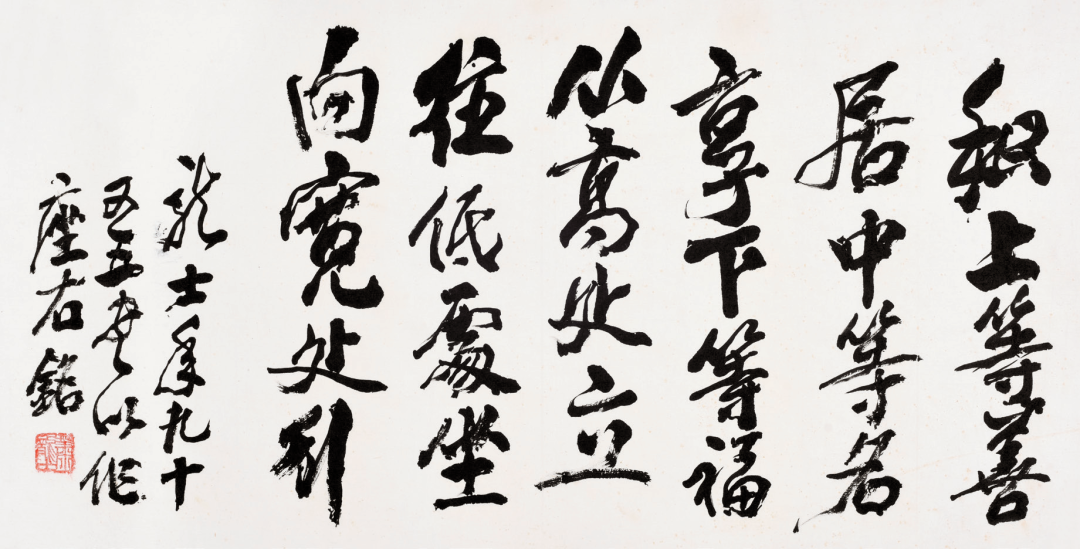 积上等善
居中等名
享下等福
从高处立
往低處坐
向寬处行
龙士年九十
又五书以作
座右銘